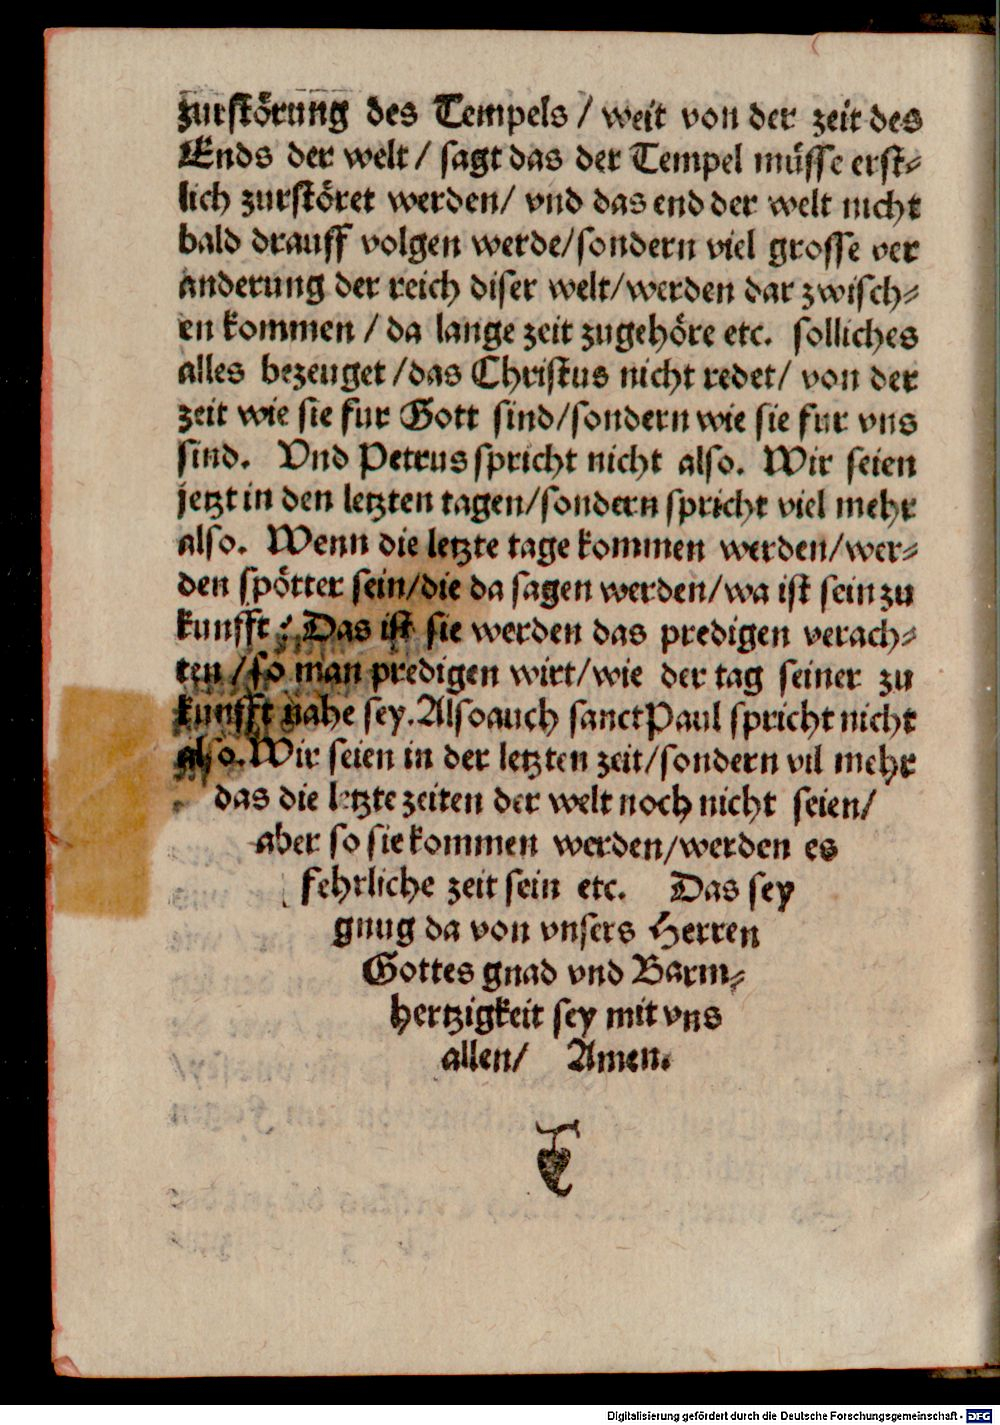 zurstörung des Tempels / weit von der zeit des
Ends der welt / sagt das der Tempel müsse erst⸗
lich zurstöret werden / vnd das end der welt nicht
bald drauff volgen werde / sondern viel grosse ver
anderung der reich diser welt / werden dar zwisch⸗
en kommen / da lange zeit zugehöre etc. solliches
alles bezeuget / das Christus nicht redet / von der
zeit wie sie fur Gott sind / sondern wie sie fur vns
sind. Vnd Petrus spricht nicht also. Wir seien
jetzt in den letzten tagen / sondern spricht viel mehr
also. Wenn die letzte tage kommen werden / wer⸗
den spötter sein / die da sagen werden / wa ist sein zu
kunfft? Das ist sie werden das predigen verach⸗
ten / so man predigen wirt / wie der tag seiner zu
kunfft nahe sey. Also auch sanct Paul spricht nicht
also. Wir seien in der letzten zeit / sondern vil mehr
das die letzte zeiten der welt noch nicht seien /
aber so sie kommen werden / werden es
fehrliche zeit sein etc. Das sey
gnug da von vnsers Herren
Gottes gnad vnd Barm⸗
hertzigkeit sey mit vns
allen / Amen.
Digitalisierung gefördert durch die Deutsche Forschungsgemeinschaft - DFG